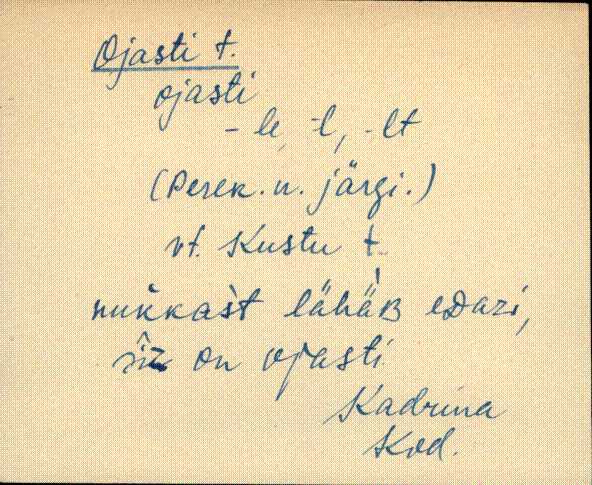 Ojasti t.
ojasti
-le, -l, -lt
(Perek. n. järgi.)
vt. Kustu t.
nukkast lähäB eDazi,
siz on ojasti
Kadrina
Kod.